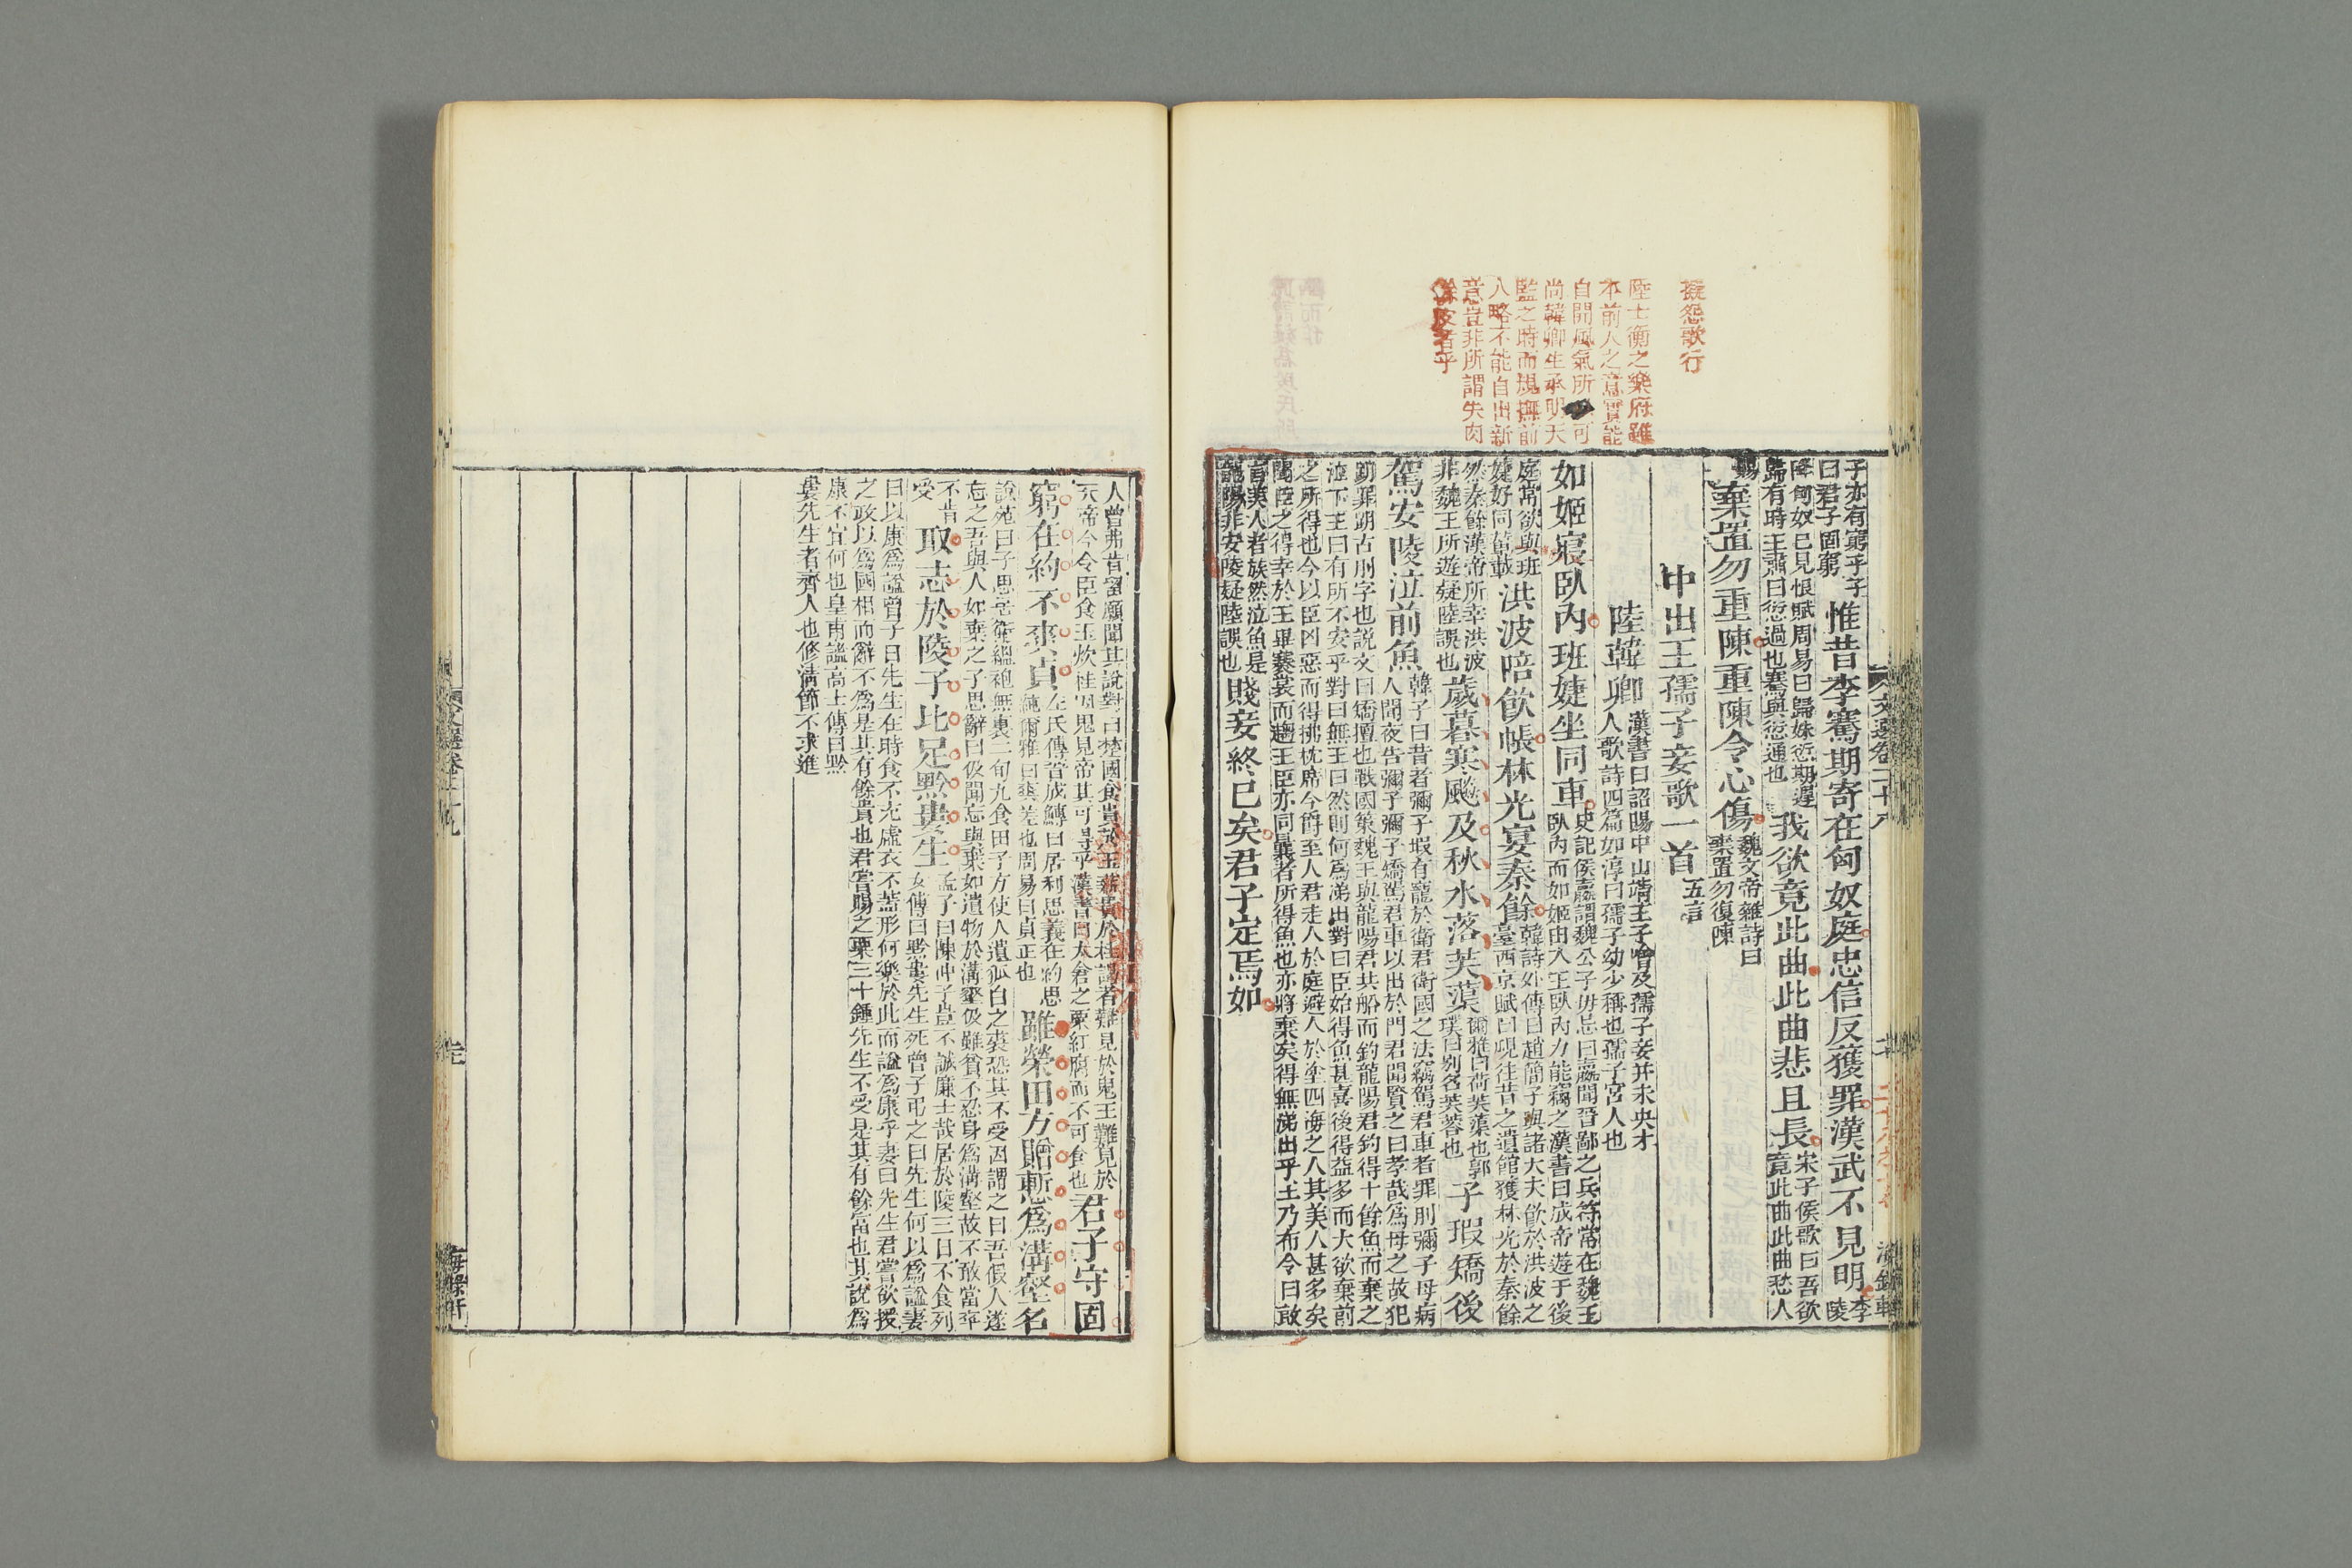 擬怨歌行
陸士衡之樂府雖
本前人之意實能
自開風氣所 可
尚韓卿生承明天
監之時而規撫前
人略不能自出新
意豈非所謂失肉
餘皮者乎
文選卷二十八
子亦有窮乎子
曰君子固窮
惟昔李騫期寄在匈奴庭忠信反獲罪漢武不見明
李陵
降匈奴已見恨賦周易曰歸妹愆期遲
歸有時王肅曰愆過也騫與愆通也
我欲竟此曲此曲悲且長
宋子侯歌曰吾欲
竟此曲此曲愁人
腸
棄置勿重陳重陳令心傷
魏文帝雜詩曰
棄置勿復陳
中山王孺子妾歌一首
五言
陸韓卿
漢書曰詔賜中山靖王子噲及孺子妾并未央才
人歌詩四篇如淳曰孺子幼少稱也孺子宮人也
如姬寢臥內班婕坐同車
史記侯嬴謂魏公子毋忌曰嬴聞晉鄙之兵符常在魏王
臥內而如姬出入王臥內力能竊之漢書曰成帝遊于後
庭常欲與班
婕妤同輦載
洪波陪飲帳林光宴秦餘
韓詩外傳曰趙簡子與諸大夫飲於洪波之
臺西京賦曰覛往昔之遺館獲林光於秦餘
然秦餘漢帝所幸洪波
非魏王所遊疑陸誤也
歲暮寒飈及秋水落芙蕖
爾雅曰荷芙蕖也郭
璞曰别名芙蓉也
子瑕矯後
駕安陵泣前魚
韓子曰昔者彌子瑕有寵於衛君衛國之法竊駕君車者罪刖彌子母病
人閒夜告彌子彌子矯駕君車以出於門君聞賢之曰孝哉爲母之故犯
刖罪跀古刖字也説文曰矯擅也戰國策魏王與龍陽君共船而釣龍陽君釣得十餘魚而棄之
泣下王曰有所不安乎對曰無王曰然則何爲涕出對曰臣始得魚甚喜後得益多而大欲棄前
之所得也今以臣凶惡而得拂枕席今爵至人君走人於庭避人於塗四海之人其美人甚多矣
聞臣之得幸於王畢褰裳而趨王臣亦同曩者所得魚也亦將棄矣得無涕出乎王乃布令曰敢
言美人者族然泣魚是
龍陽非安陵疑陸誤也
賤妾終已矣君子定焉如
人曾弗昔寧願聞其說對曰楚國食貴於玉薪貴於桂謁者難見於鬼王難見於
天帝今令臣食玉炊桂因鬼見帝其可得乎漢書曰太倉之粟紅腐而不可食也
君子守固
窮在約不爽貞
左氏傳晉成鱄曰居利思義在約思
純爾雅曰爽差也周易曰貞正也
雖榮田方贈慙爲溝壑名
說苑曰子思居衛縕袍無裏二旬九食田子方使人遺狐白之裘恐其不受因謂之曰吾假人遂
忘之吾與人如棄之子思辭曰伋聞忘與棄如遺物於溝壑伋雖貧不忍身爲溝壑故不敢當卒
不肯
受
取志於陵子比足黔婁生
孟子曰陳仲子豈不誠廉士哉居於陵三日不食列
女傳曰黔婁先生死曾子弔之曰先生何以爲諡妻
曰以康爲諡曾子曰先生在時食不充虛衣不蓋形何樂於此而諡爲康乎妻曰先生君嘗欲授
之政以爲國相而辭不爲是其有餘貴也君嘗賜之粟三十鍾先生不受是其有餘富也其說爲
康不宜何也皇甫謐高士傳曰黔
婁先生者齊人也修清節不求進
海錄軒